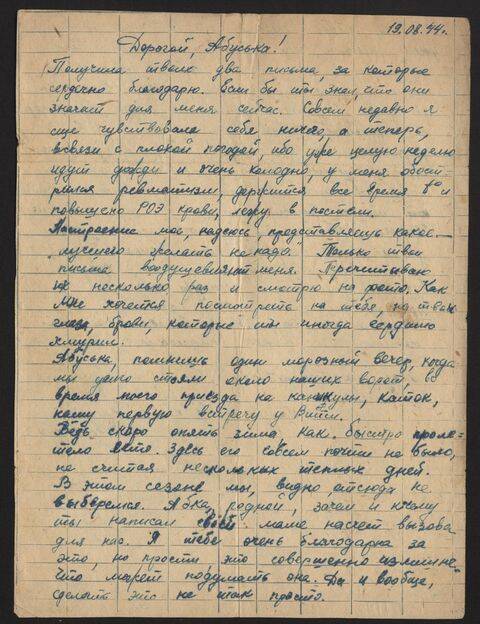 19.08.44г.
Дорогой, Абуська!
Получила твоих два письма, за которые
сердечно благодарю. Если бы ты знал, что они
значат для меня сейчас. Совсем недавно я
еще чувствовала себя ничего, а теперь,
в связи с плохой погодой, ибо уже целую неделю
идут дожди и очень холодно, у меня обост-
рился ревматизм, держится все время t° и
повышено РОЭ крови, лежу в постели.
Настроение мое, надеюсь, представляешь какое. —
"лучшего желать не надо." Только твои
письма воодушевляют меня. Перечитываю
их несколько раз и смотрю на фото. Как
мне хочется посмотреть на тебя, на твои
глаза, брови, которые ты иногда сердито
хмурил.
Абуська, помнишь один морозный вечер, когда
мы долго стояли около наших ворот, во
время моего приезда на каникулы, каток,
нашу первую встречу у Вити.
Ведь скоро опять зима, как быстро проле-
тело лето. Здесь его совсем почти не было,
не считая нескольких теплых дней.
В этом сезоне мы, видно, отсюда не
выберемся. Абка, родной, зачем и к чему
ты написал своей маме насчет вызова
для нас. Я тебе очень благодарна за
это, но прости, это совершенно излишне.
Что может подумать она. Да и вообще,
сделать это не так просто.